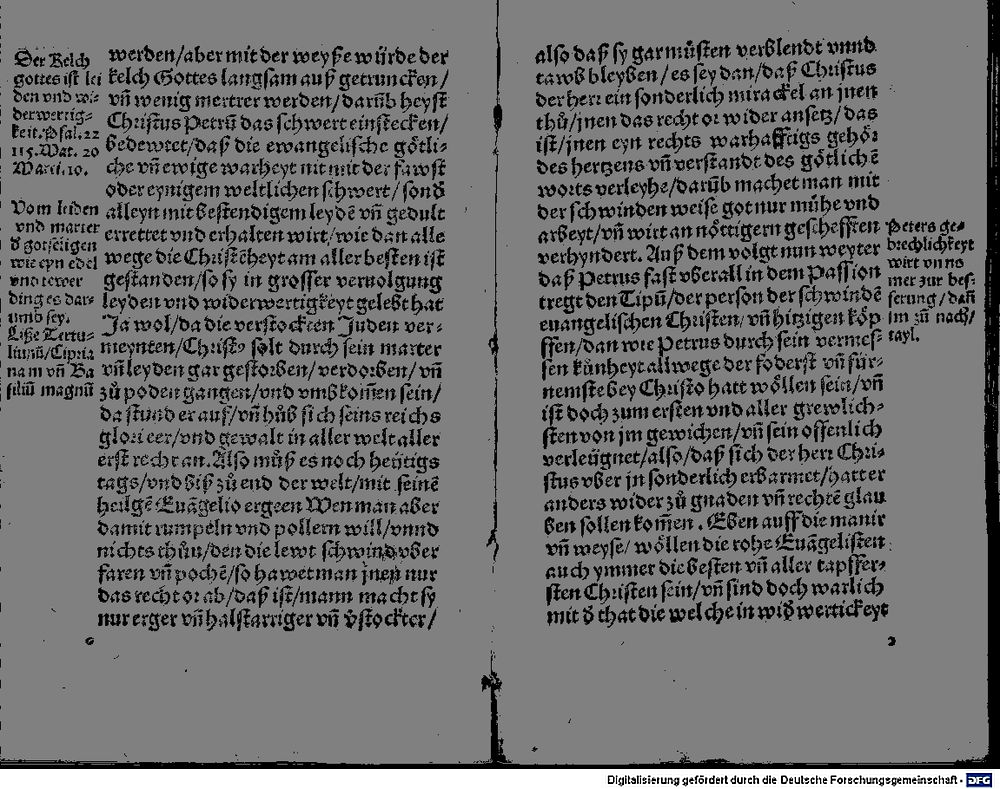 Der Kelch
gottes ist lei
den vnd wi-
derwertig-
keit. Psal. 22
115. Mat. 20
Marci. 10.
Vom leiden
vnd marter
d̄ gotseligen
wie eyn edel
vnd tewer
ding es dar-
umb sey.
Liße Tertu-
liunū/Cipria
nam vñ Ba
siliū magnū
werden/aber mit der weyße würde der
kelch Gottes langsam auß getruncken/
vñ wenig mertrer werden/darūb heyst
Christus Petrū das schwert einstecken/
bedewtet/daß die ewangelische götli-
che vñ ewige warheyt nit mit der fawst
oder eynigem weltlichen schwert/sond̄
alleyn mit bestendigem leydē vñ gedult
errettet vnd erhalten wirt/wie dan alle
wege die Christēheyt am aller besten ist
gestanden/so sy in grosser veruolgung
leyden vnd widerwertigkeyt gelebt hat
Ja wol/da die verstockten Juden ver-
meynten/Christꝰ solt durch sein marter
vñ leyden gar gestorben/verdorben/vñ
zů poden gangen/vnd vmbkom̄en sein/
da stund er auf/vñ hůb sich seins reichs
glori eer/vnd gewalt in aller welt aller
erst recht an. Also můß es noch heütigs
tags/vnd biß zů end der welt/mit seinē
heilgē Euāgelio ergeen Wen man aber
damit rumpeln vnd pollern will/vnnd
nichts thůn/den die lewt schwind vber
faren vñ pochē/so hawet man jnen nur
das recht or ab/daß ist/mann macht sy
nur erger vñ halstarriger vñ v̄stockter/
also daß sy gar můsten verblendt vnnd
tawb bleyben/es sey dan/daß Christus
der herr ein sonderlich mirackel an jnen
thů/jnen das recht or wider ansetz/das
ist/jnen eyn rechts warhafftigs gehör
des hertzens vñ verstandt des götlichē
worts verleyhe/darūb machet man mit
der schwinden weise got nur mühe vnd
arbeyt/vñ wirt an nöttigern geschefften
verhyndert. Auß dem volgt nun weyter
daß Petrus fast vberall in dem Passion
tregt den Tipū/der person der schwindē
euangelischen Christen/vñ hitzigen köp
ffen/dan wie Petrus durch sein vermes-
sen kůnheyt allwege der foderst vñ für-
nemste bey Christo hatt wöllen sein/vñ
ist doch zum ersten vnd aller grewlich-
sten von jm gewichen/vñ sein offenlich
verleügnet/also/daß sich der herr Chri-
stus vber jn sonderlich erbarmet/hatt er
anders wider zů gnaden vñ rechtē glau
ben sollen kom̄en. Eben auff die manir
vñ weyse/wöllen die rohe Euāgelisten
auch ymmer die besten vñ aller tapffer-
sten Christen sein/vñ sind doch warlich
mit d̄ that die welche in wid̄ wertickeyt
Peters ge-
brechlichkeyt
wirt vnns
mer zur bes-
serung/dañ
im zů nach/
tayl.
Digitalisierung gefördert durch die Deutsche Forschungsgemeinschaft - DFG